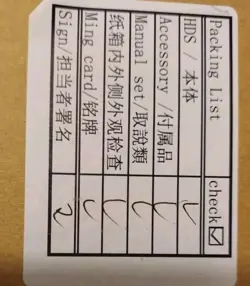 Packing List check☑
HDS / 本体
Accessory /付属品
Manual set/取説類
纸箱内外侧外观检查
Ming card/铭牌
Sign/担当者署名